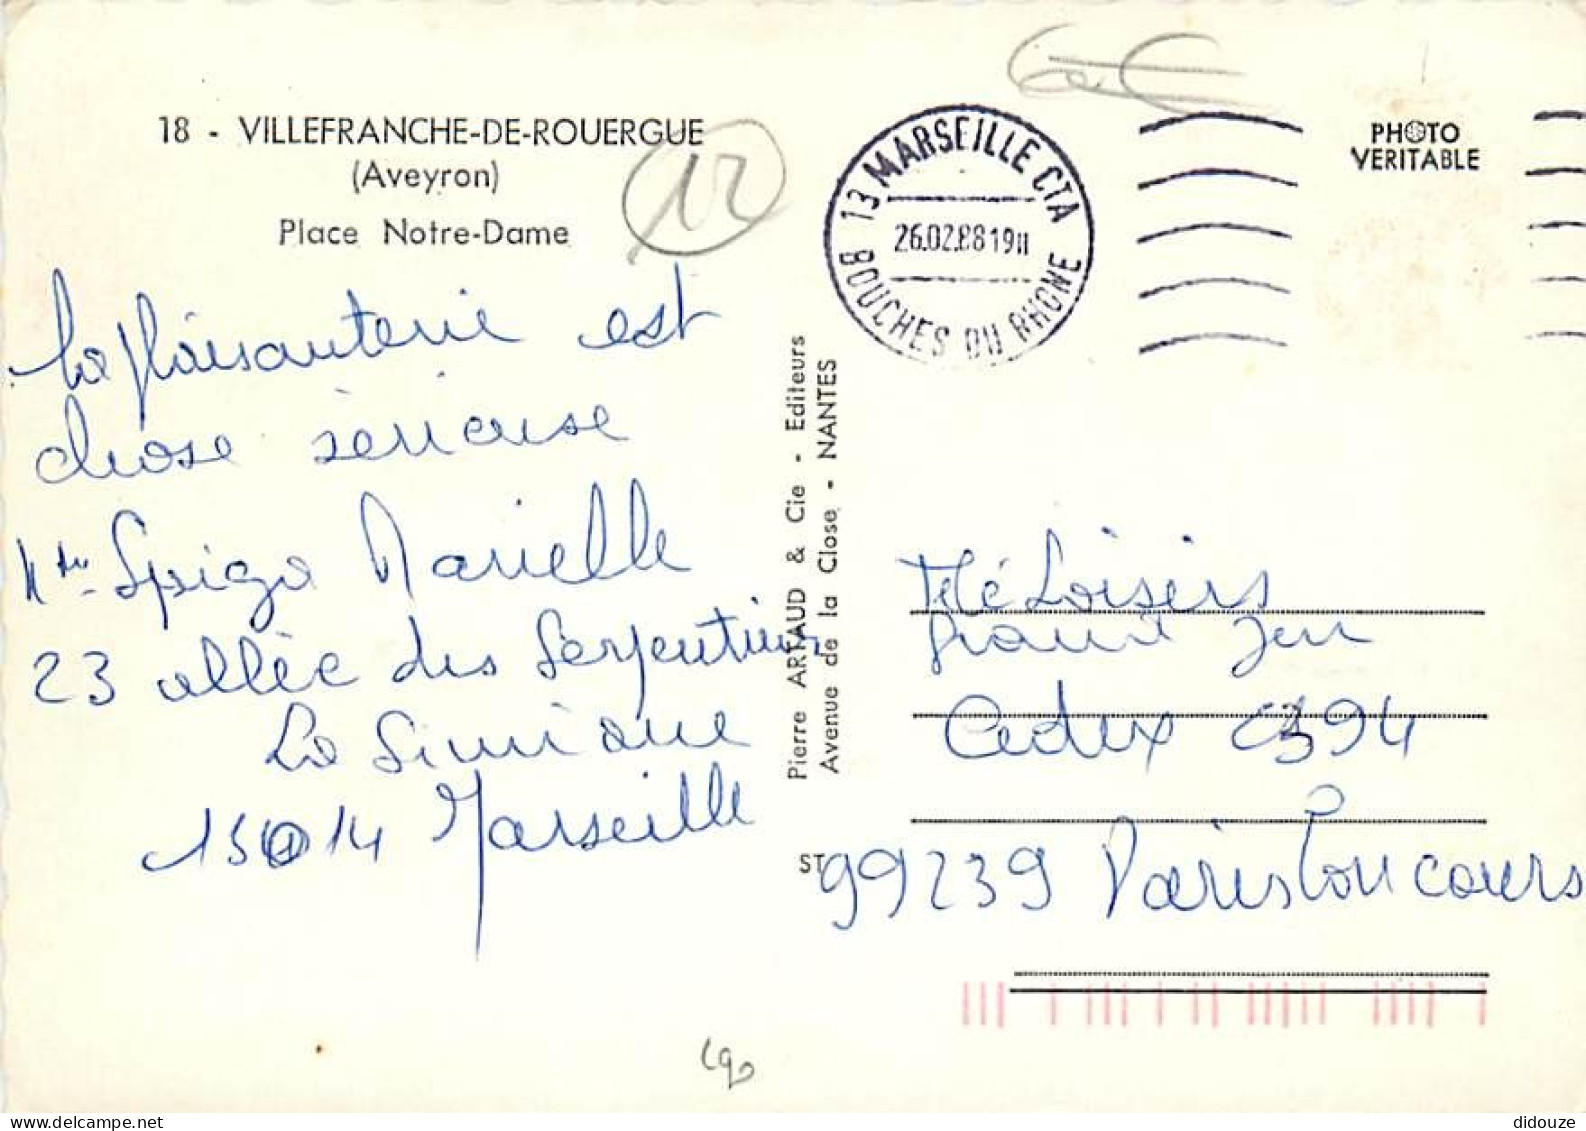 18 - VILLEFRANCHE-DE-ROUERGUE
(Aveyron)
Place Notre-Dame
12
La plaisanterie est
chose sèrieuse
Spiga Marielle
23 allèe des Serpentins
La Simiane
13014 Marseille
Pierre ARTAUD & Cie - Editeurs
Avenue de la Close - NANTES
ST
13 MARSEILLE CTA
26.02.88 19H
BOUCHES DU RHONE
PHOTO
VERITABLE
Télé Loisirs
Grand Jeu
Cedex 2394
99239 Paris Concours
didouze